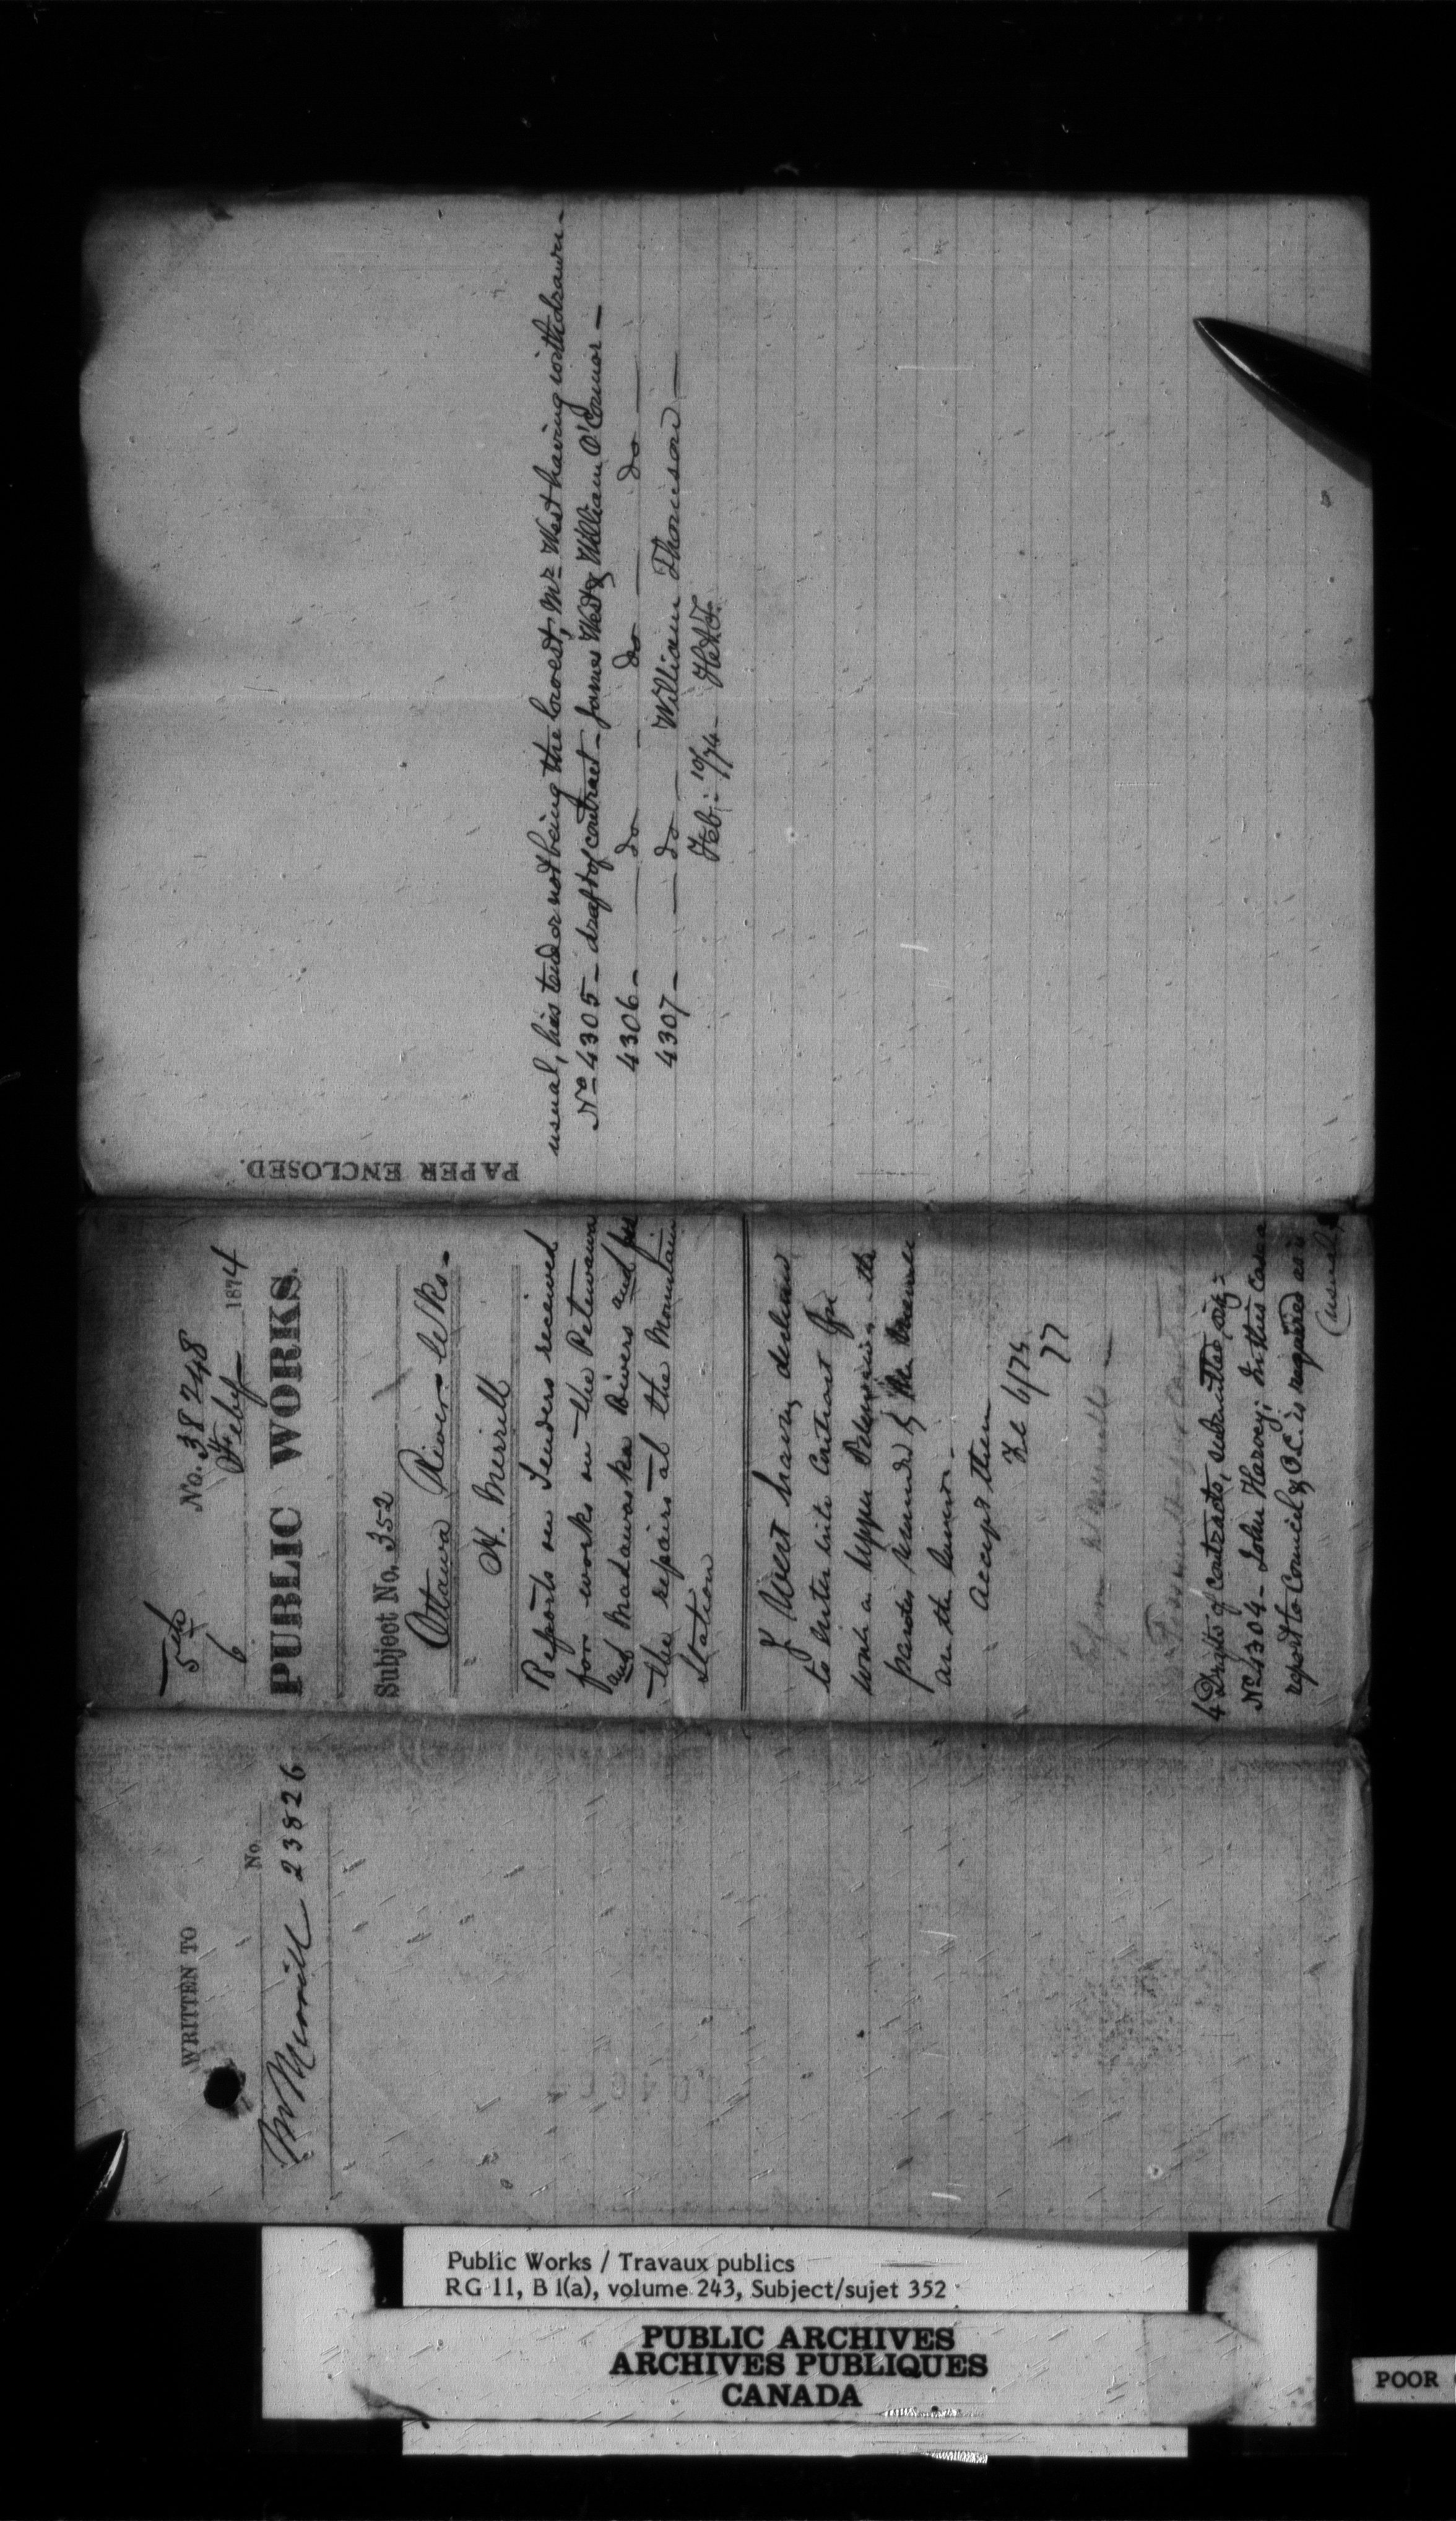 WRITTEN TO
No.
Mr Merrill 23826
5th
6
No. 38248
Feby 1874
PUBLIC WORKS.
Subject No. 352
Ottawa River Wks-
H. Merrill
Reports on Tenders received
for works on the Petewawa
and Madawaska Rivers and for
the repairs at the Mountain
Station
J West having declined
to enter into Contract for
work on Upper Petewawa the
parties named by Mr Merrill
are the lowest -
Accept them
Feb 6/74
4 Drafts of contracts, submitted, viz:-
No 4304 - John Harvey; In this case a
report to Council & O.C. is required as is
(usual,
PAPER ENCLOSED.
usual, his tender not being the lowest, Mr West having withdrawn-
No 4305 - draft of contract - James West & William O'Connor -
4306 - do - do - do -
4307 - do - William Thomson -
Feb: 10/74 -
Public Works / Travaux publics
RG 11, B 1(a), volume 243, Subject/sujet 352
PUBLIC ARCHIVES
ARCHIVES PUBLIQUES
CANADA
POOR